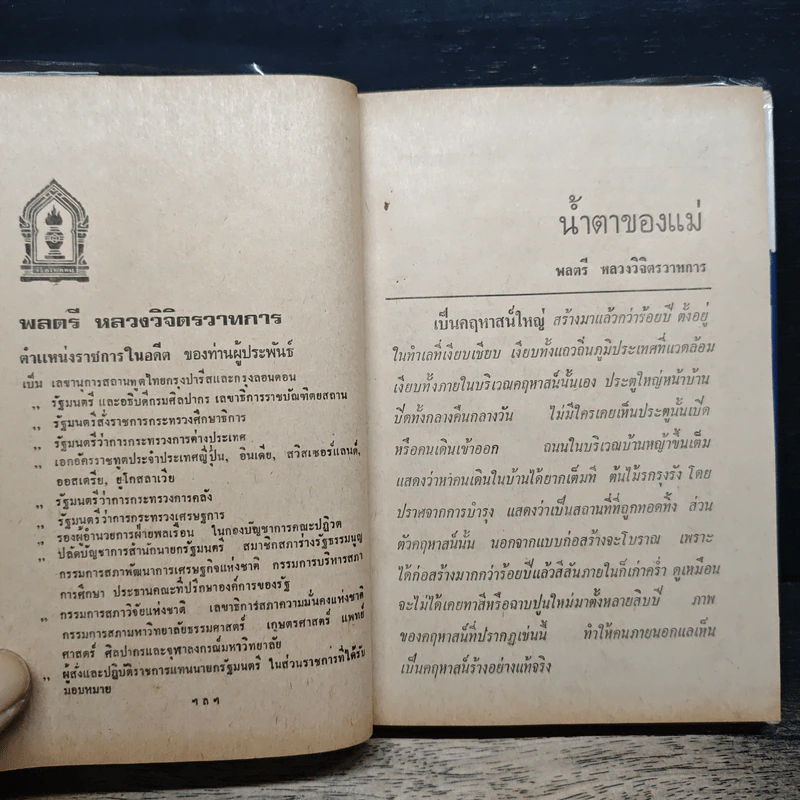 พลตรี หลวงวิจิตรวาทการ
ตำแหน่งราชการในอดีต ของท่านผู้ประพันธ์
เป็น เลขานุการสถานทูตไทยกรุงปารีสและกรุงลอนดอน
,, รัฐมนตรี และอธิบดีกรมศิลปากร เลขาธิการราชบัณฑิตยสถาน
,, รัฐมนตรีสั่งราชการกระทรวงศึกษาธิการ
,, รัฐมนตรีว่าการกระทรวงการต่างประเทศ
,, เอกอัครราชทูตประจำประเทศญี่ปุ่น, อินเดีย, สวิสเซอร์แลนด์,
ออสเตรีย, ยูโกสลาเวีย
,, รัฐมนตรีว่าการกระทรวงการคลัง
,, รัฐมนตรีว่าการกระทรวงเศรษฐการ
,, รองผู้อำนวยการฝ่ายพลเรือน ในกองบัญชาการคณะปฏิวัต
,, ปลัดบัญชาการสำนักนายกรัฐมนตรี สมาชิกสภาร่างรัฐธรรมนูญ
กรรมการสภาพัฒนาการเศรษฐกิจแห่งชาติ กรรมการบริหารสภา
การศึกษา ประธานคณะที่ปรึกษาองค์การของรัฐ
,, กรรมการสภาวิจัยแห่งชาติ เลขาธิการสภาความมั่นคงแห่งชาติ
กรรมการสภามหาวิทยาลัยธรรมศาสตร์ เกษตรศาสตร์ แพทย์
ศาสตร์ ศิลปากรและจุฬาลงกรณ์มหาวิทยาลัย
,, ผู้สั่งและปฏิบัติราชการแทนนายกรัฐมนตรี ในส่วนราชการที่ได้รับ
มอบหมาย
ฯลฯ
น้ำตาของแม่
พลตรี หลวงวิจิตรวาทการ
เป็นคฤหาสน์ใหญ่ สร้างมาแล้วกว่าร้อยปี ตั้งอยู่
ในทำเลที่เงียบเชียบ เงียบทั้งแถวถิ่นภูมิประเทศที่แวดล้อม
เงียบทั้งภายในบริเวณคฤหาสน์นั้นเอง ประตูใหญ่หน้าบ้าน
ปิดทั้งกลางคืนกลางวัน ไม่มีใครเคยเห็นประตูนั้นเปิด
หรือคนเดินเข้าออก ถนนในบริเวณบ้านหญ้าขึ้นเต็ม
แสดงว่าหาคนเดินในบ้านได้ยากเต็มที ต้นไม้รกรุงรัง โดย
ปราศจากการบำรุง แสดงว่าเป็นสถานที่ที่ถูกทอดทิ้ง ส่วน
ตัวคฤหาสน์นั้น นอกจากแบบก่อสร้างจะโบราณ เพราะ
ได้ก่อสร้างมากว่าร้อยปีแล้วสีสันภายในก็เก่าคร่ำ ดูเหมือน
จะไม่ได้เคยทาสีหรือฉาบปูนใหม่มาตั้งหลายสิบปี ภาพ
ของคฤหาสน์ที่ปรากฏเช่นนี้ ทำให้คนภายนอกแลเห็น
เป็นคฤหาสน์ร้างอย่างแท้จริง